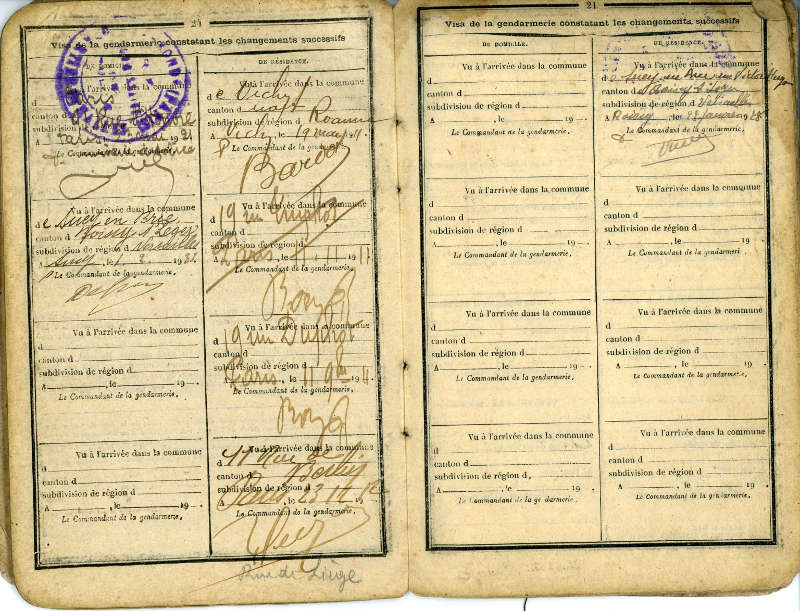 20
Visa de la gendarmerie constatant les changements successifs
DE DOMICILE.
Paris
canton d
subdivision de région
Paris 1921
Le Commandant de la gendarmerie
Vu à l'arrivée dans la commune
de Sucy en Brie
canton d Boissy St Léger
subdivision de région d Versailles
A Sucy, le 1 2 1931
Le Commandant de la gendarmerie.
Vu à l'arrivée dans la commune
d
canton d
subdivision de région d
A , le 19 .
Le Commandant de la gendarmerie.
Vu à l'arrivée dans la commune
d
canton d
subdivision de région d
A , le 19
Le Commandant de la gendarmerie.
DE RÉSIDENCE.
Vu à l'arrivée dans la commune
de Vichy
canton dudit
subdivision de région d Roanne
A Vichy, le 19 mars 11.
Le Commandant de la gendarmerie.
Vu à l'arrivée dans la commune
d 19 rue
canton d
subdivision de région d
A Paris, le 11 11 1911
Le Commandant de la gendarmerie.
Vu à l'arrivée dans la commune
d 19 rue
canton d
subdivision de région d
Paris, le 11 19
Le Commandant de la gendarmerie.
Vu à l'arrivée dans la commune
d 41 Rue de
canton d
subdivision de région d
Paris, le 23
Le Commandant de la gendarmerie.
Rue de Liège
21
Visa de la gendarmerie constatant les changements successifs
DE DOMICILE.
Vu à l'arrivée dans la commune
d
canton d
subdivision de région d
A , le 19 .
Le Commandant de la gendarmeri
Vu à l'arrivée dans la commune
d
canton d
subdivision de région d
A , le 19 .
Le Commandant de la gendarmeri
Vu à l'arrivée dans la commune
d
canton d
subdivision de région d
A , le 19 .
Le Commandant de la gendarmerie,
Vu à l'arrivée dans la commune
d
canton d
subdivision de région d,
A , le 19 .
Le Commandant de la gendarmerie.
DE RÉSIDENCE.
Vu à l'arrivée dans la commune
de Sucy en Brie rue Victor Hugo
canton d Boissy St Léger
subdivision de région d Versailles
A Boissy, le 28 janvier 19
Le Commandant de la gendarmerie.
Vu à l'arrivée dans la commune
d
canton d
subdivision de région d
A , le 19 .
Le Commandant de la gendarmerie.
Vu à l'arrivée dans la commune
d
canton d
subdivision de région d
A , le 19 .
Le Commandant de la gendarmerie.
Vu à l'arrivée dans la commune
d
canton d
subdivision de région d
A , le 19 .
Le Commandant de la gendarmerie.